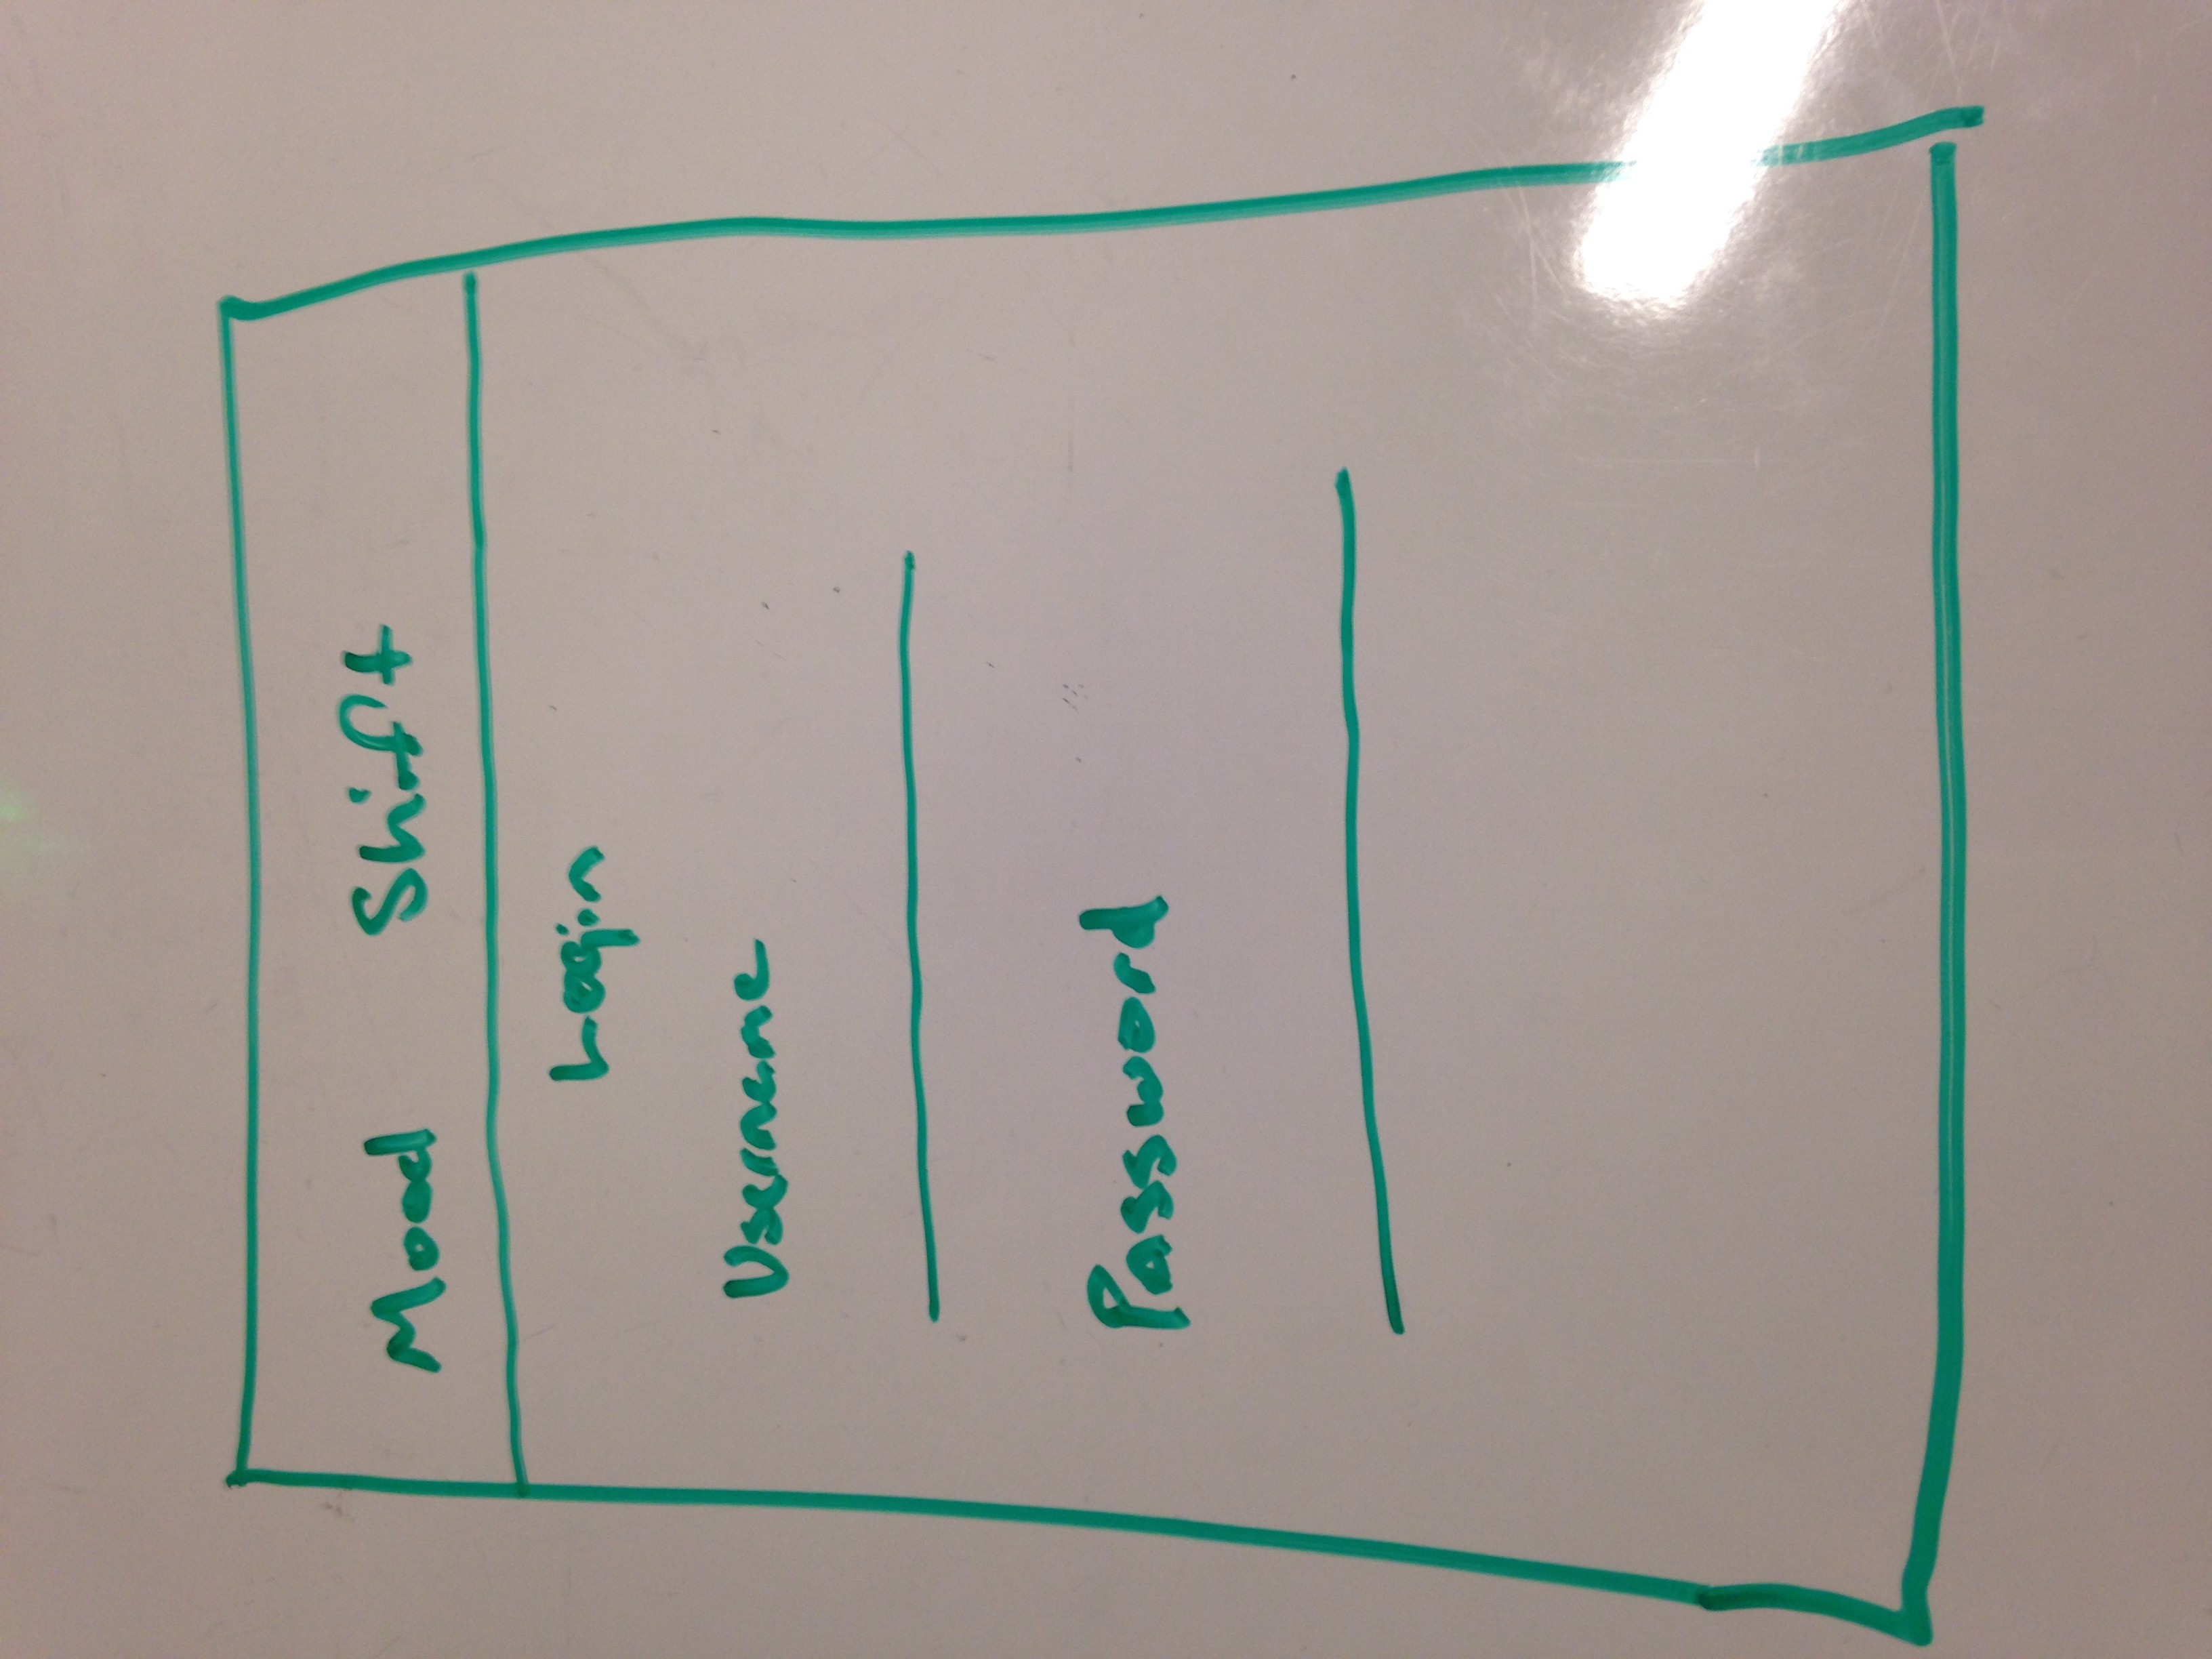 Mood Shift
Login
Username
Password